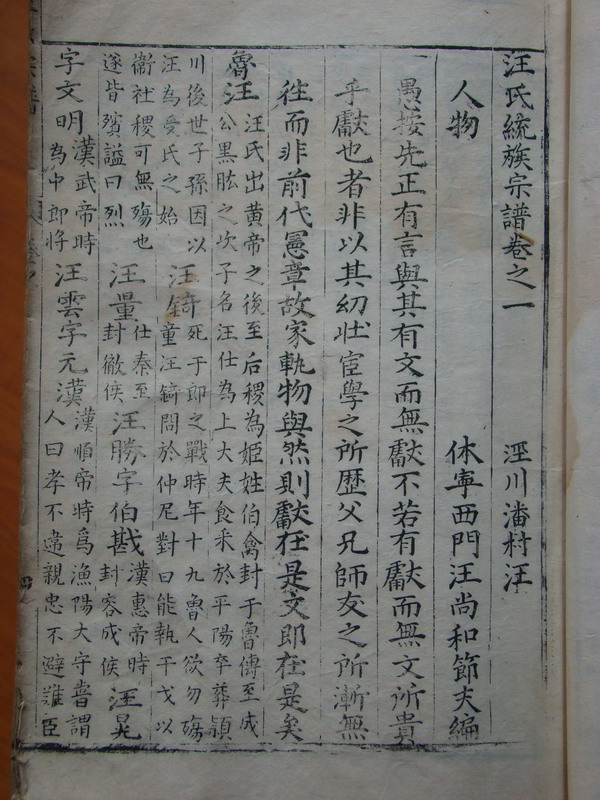 汪氏統族宗譜卷之一　涇川潘村汪
人物　休寧西門汪尚和節夫編
愚按先正有言與其有文而無獻不若有獻而無文所貴
乎獻也者非以其幼壯宦學之所歷父兄師友之所漸無
往而非前代憲章故家軌物與然則獻在是文即在是矣
魯汪 汪氏出黃帝之後至后稷為姬姓伯禽封于魯傳至成
公黑肱之次子名汪仕為上大夫食采於平陽卒葬潁
川後世子孫因以
汪為受氏之始 汪錡 死于郎之戰時年十九魯人欲勿殤
童汪錡問於仲尼對曰能執干戈以
衛社稷可無殤也
遂皆殯謚曰烈 汪量 仕秦至
封徹侯 汪勝字伯戡 漢惠帝時
封容成侯 汪晃
字文明 漢武帝時
為中郎將 汪雲字元漢 漢順帝時為漁陽大守嘗謂
人曰孝不違親忠不避誰臣